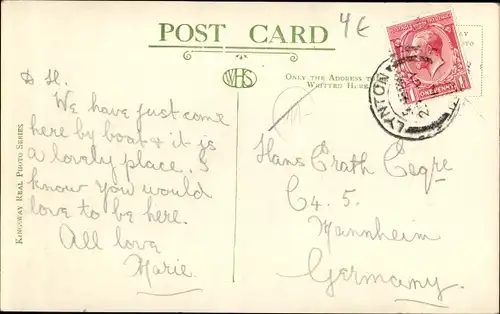 POST CARD
4 €
WHS
ONLY THE ADDRESS TO
WRITTEN HERE
LYNTON
ONE PENNY
KINGSWAY REAL PHOTO SERIES
D H.
We have just come
here by boat & it is
a lovely place. I
know you would
love to be here.
All love
Marie.
Hans Erath
C4. 5.
Mannheim
Germany.